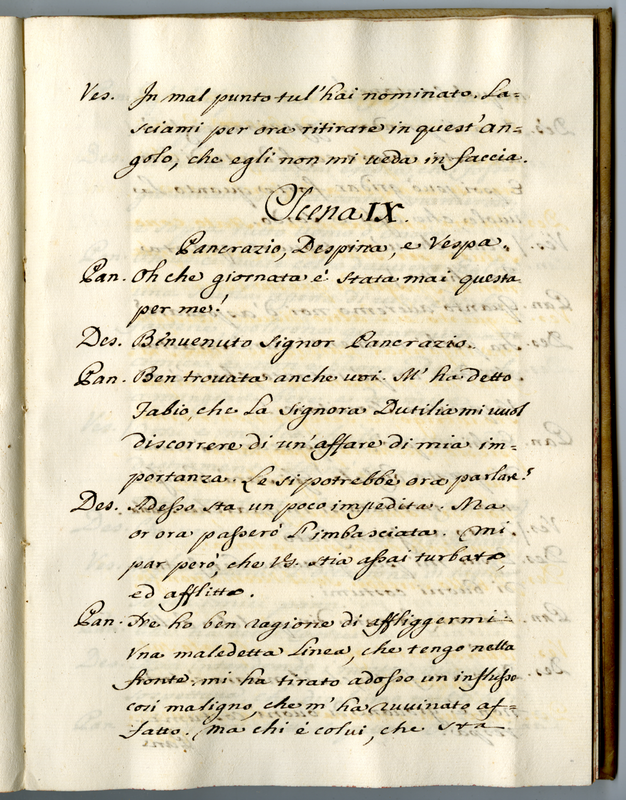 Ves. In mal punto tu l'hai nominato. La=
sciami per ora ritirare in quest'an=
golo, che egli non mi veda in faccia.
Scena IX.
Pancrazio, Despina, e Vespa.
Pan. Oh che giornata è stata mai questa
per me!
Des. Benvenuto Signor Pancrazio.
Pan. Ben trovata anche voi. M'ha detto
Fabio, che La Signora Dutilia mi vuol
discorrere di un'affare di mia im=
portanza. Le si potrebbe ora parlare?
Des. Adesso sta un poco impedita. Ma
or ora passerò l'imbasciata. Mi
par però, che VS. stia assai turbata,
ed afflitta.
Pan. Ne ho ben ragione di affliggermi.
Una maledetta Linea, che tengo nella
fronte, mi ha tirato adosso un influsso
così maligno, che m'ha ruvinato af=
fatto. Ma chi è colui, che sta